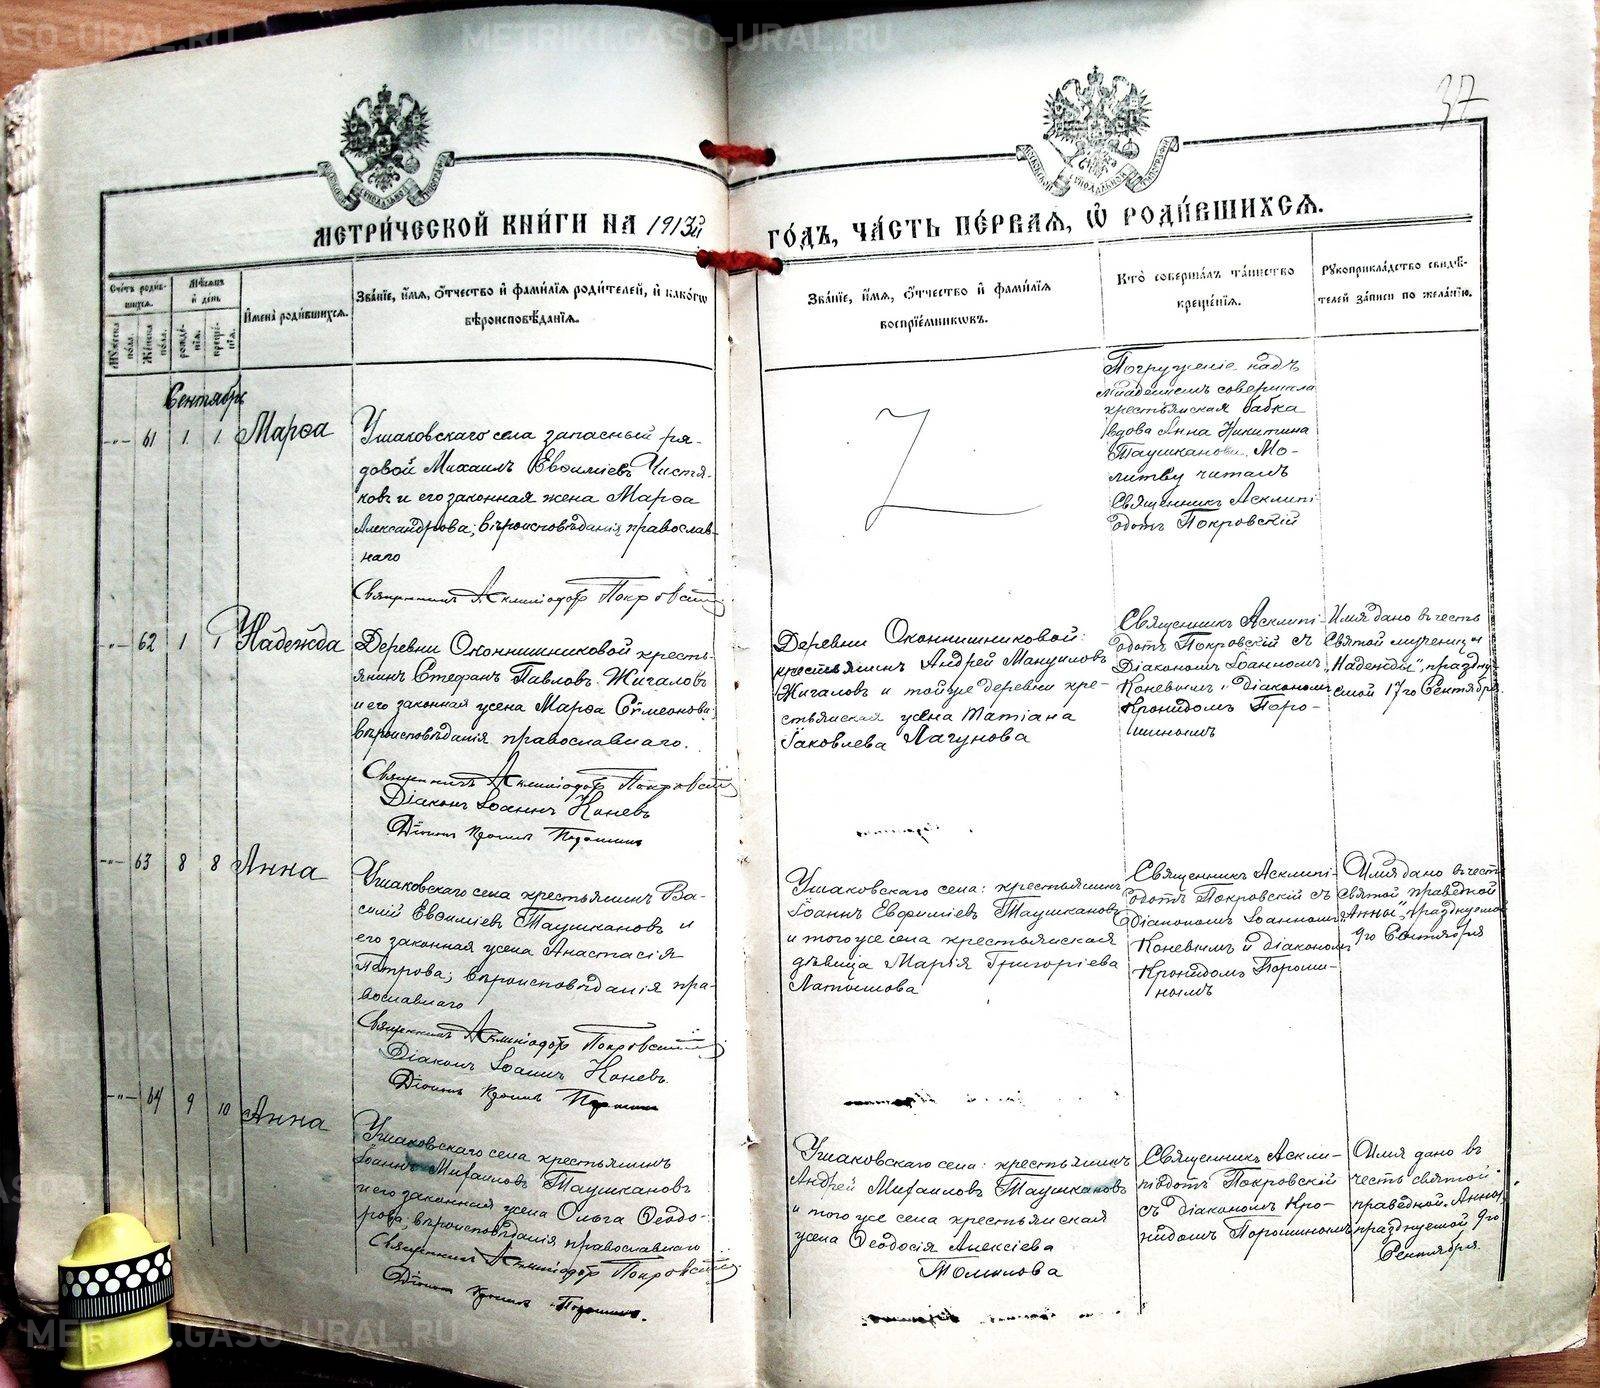 METRIKI.GASO-URAL.RU
37
МЕТРИ́ЧЕСКОЙ КНИ́ГИ НА 1913й
ГО́ДЪ, ЧА́СТЬ ПЕ́РВАЯ, Ѡ҆ РОДИ́ВШИХСЯ.
Сче́тъ роди́в-
шихся.
Мѣ́сяцъ
и҆ де́нь
Мꙋ́жеска
по́ла.
Же́нска
по́ла.
рожде́-
нїя.
креще́-
нїя.
И҆мена̀ роди́вшихся.
Зва́нїе, и҆́мя, ѻ҆́тчество и҆ фами́лїя роди́телей, и҆ како́гѡ
вѣроисповѣ́данїя.
Зва́нїе, и҆́мя, ѻ҆́тчество и҆ фами́лїя
воспрїе́мникѡвъ.
Кто̀ соверша́лъ та́инство
креще́нїя.
Рꙋкоприкла́дство свидѣ́-
телей за́писи по жела́нїю.
Сентябрь
-"- 61 1 1 Марѳа
Ушаковскаго села запасный ря-
довой Михаилъ Евѳиміевъ Чистя-
ковъ и его законная жена Марѳа
Александрова; вѣроисповѣданія православ-
наго
Священникъ Асклипіодотъ Покровскій
Погруженіе надъ
младенцемъ совершила
крестьянская бабка
вдова Анна Никитина
Таушканова. Мо-
литву читалъ
Священникъ Асклипі-
одотъ Покровскій
-"- 62 1 1 Надежда
Деревни Оконнишниковой кресть-
янинъ Стефанъ Павловъ Жигаловъ
и его законная жена Марѳа Симеонова;
вѣроисповѣданія православнаго.
Священникъ Асклипіодотъ Покровскій
Діаконъ Іоаннъ Коневъ
Діаконъ Порошинъ
Деревни Оконнишниковой:
крестьянинъ Андрей Мануиловъ
Жигаловъ и той же деревни кре-
стьянская жена Татіана
Іаковлева Лагунова
Священникъ Асклипі-
одотъ Покровскій съ
Діакономъ Іоанномъ
Коневымъ и діакономъ
Кронидомъ Поро-
шинымъ
Имя дано въ честь
Святой мученицы
"Надежды", праздну-
емой 17го Сентября.
-"- 63 8 8 Анна
Ушаковскаго села крестьянинъ Ва-
силій Евѳиміевъ Таушкановъ и
его законная жена Анастасія
Петрова; вѣроисповѣданія пра-
вославнаго
Священникъ Асклипіодотъ Покровскій
Діаконъ Іоаннъ Коневъ.
Діаконъ
Ушаковскаго села: крестьянинъ
Іоаннъ Евфиміевъ Таушкановъ
и того же села крестьянская
дѣвица Марія Григоріева
Латышова
Священникъ Асклипі-
одотъ Покровскій съ
Діакономъ Іоанномъ
Коневымъ и діакономъ
Кронидомъ Пороши-
нымъ
Имя дано въ честь
Святой праведной
"Анны", празднуемой
9го Сентября
-"- 64 9 10 Анна
Ушаковскаго села крестьянинъ
Іоаннъ Михаиловъ Таушкановъ
и его законная жена Ольга Ѳеодо-
рова; вѣроисповѣданія православнаго
Священникъ Асклипіодотъ Покровскій
Діаконъ Порошинъ.
Ушаковскаго села: крестьянинъ
Андрей Михаиловъ Таушкановъ
и того же села крестьянская
жена Ѳеодосія Алексіева
Томилова
Священникъ Аскли-
піодотъ Покровскій
съ діакономъ Кро-
нидомъ Порошинымъ
Имя дано въ
честь святой
праведной Анны,
празднуемой 9го
Сентября.
METRIKI.GASO-URAL.RU